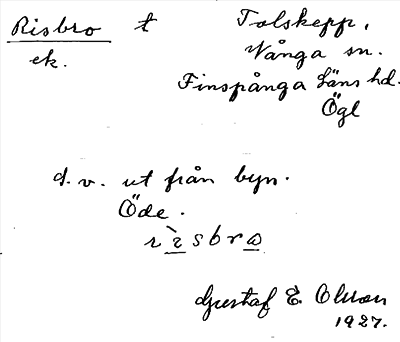 Risbro t Tolskepp,
ek. Vånga sn.
Finspånga läns hd.
Ögl
d. v. ut från byn.
Öde.
rìsbrω
Gustaf E. Olsson
1927.